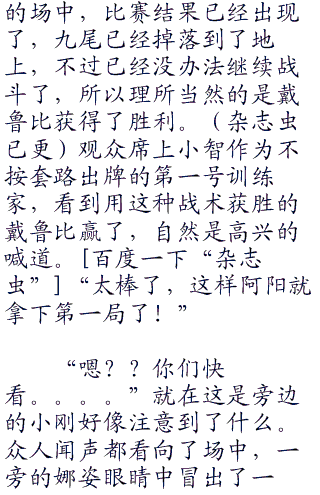 的场中，比赛结果已经出现
了，九尾已经掉落到了地
上，不过已经没办法继续战
斗了，所以理所当然的是戴
鲁比获得了胜利。（杂志虫
已更）观众席上小智作为不
按套路出牌的第一号训练
家，看到用这种战术获胜的
戴鲁比赢了，自然是高兴的
喊道。[百度一下“杂志
虫”]“太棒了，这样阿阳就
拿下第一局了！”
“嗯？？你们快
看。。。。”就在这是旁边
的小刚好像注意到了什么。
众人闻声都看向了场中，一
旁的娜姿眼睛中冒出了一